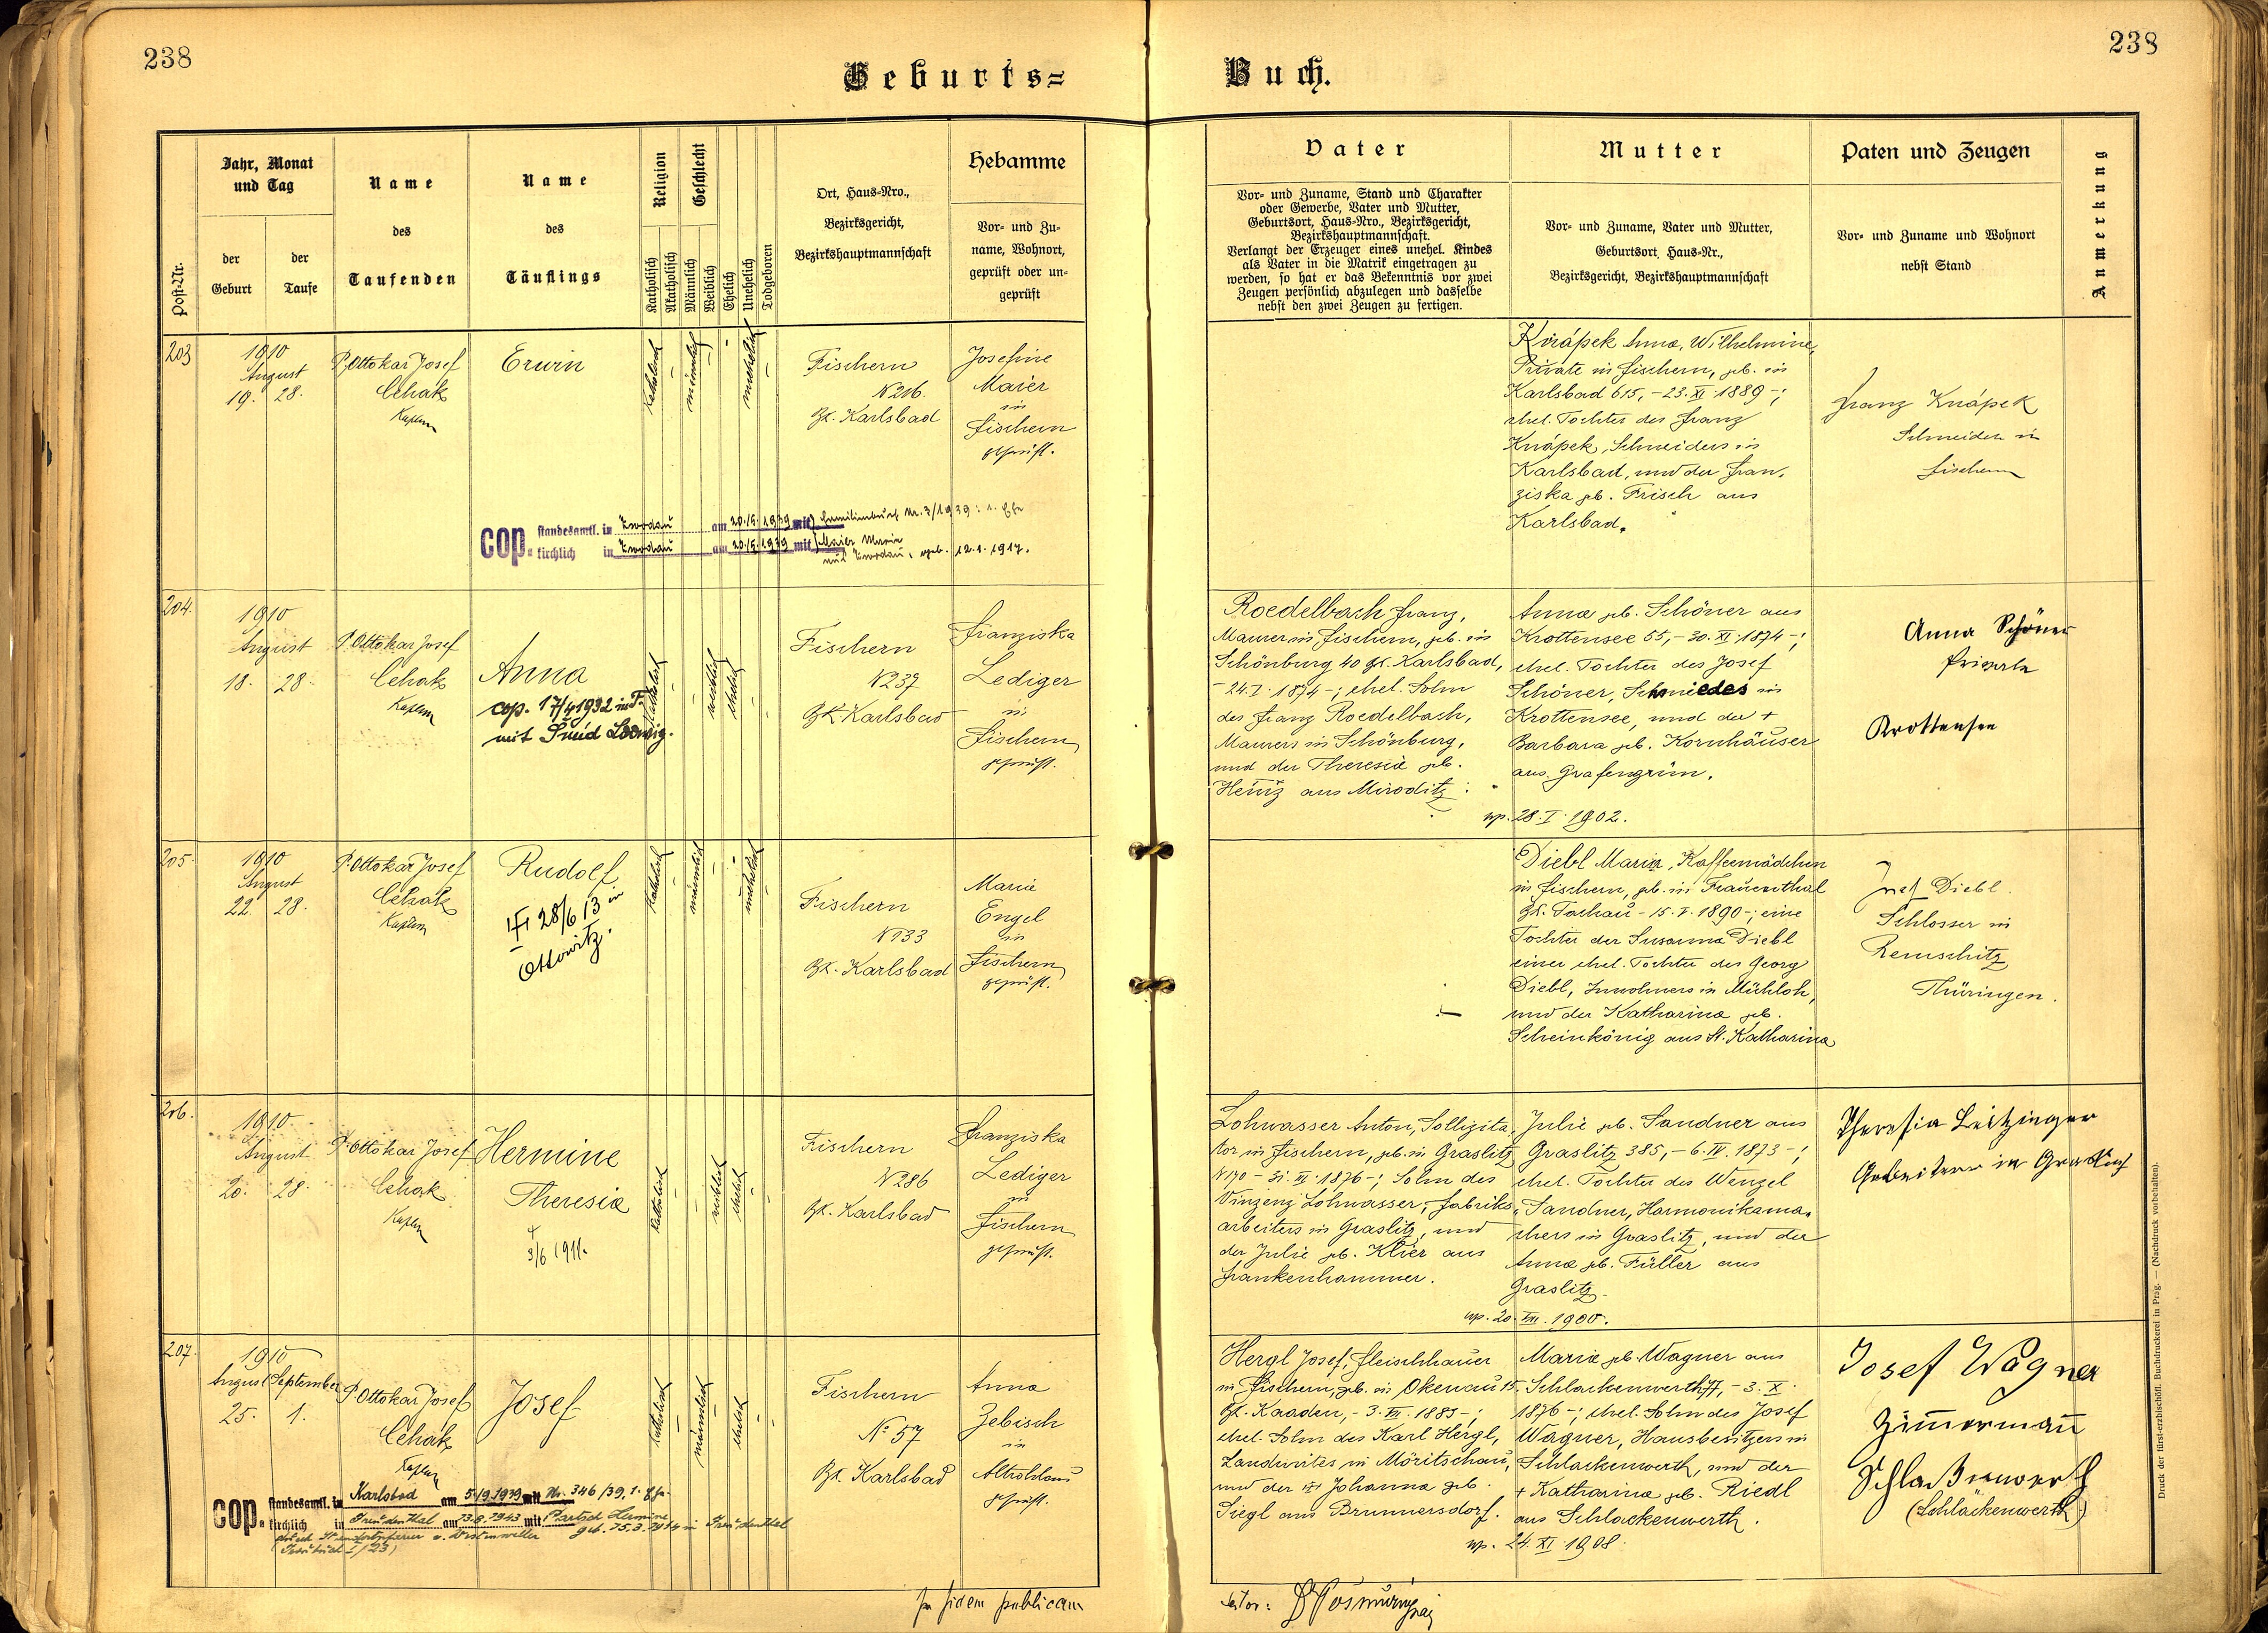 238
238
Geburts=
Buch.
Post-Nr.
Jahr, Monat
und Tag
der
Geburt
der
Taufe
Name
des
Taufenden
Name
des
Täuflings
Religion
Katholisch
Akatholisch
Geschlecht
Männlich
Weiblich
Ehelich
Unehelich
Todgeboren
Ort, Haus-Nro.,
Bezirksgericht,
Bezirkshauptmannschaft
Hebamme
Vor- und Zu-
name, Wohnort,
geprüft oder un-
geprüft
Vater
Vor- und Zuname, Stand und Charakter
oder Gewerbe, Vater und Mutter,
Geburtsort, Haus-Nro., Bezirksgericht,
Bezirkshauptmannschaft.
Verlangt der Erzeuger eines unehel. Kindes
als Vater in die Matrik eingetragen zu
werden, so hat er das Bekenntnis vor zwei
Zeugen persönlich abzulegen und dasselbe
nebst den zwei Zeugen zu fertigen.
Mutter
Vor- und Zuname, Vater und Mutter,
Geburtsort, Haus-Nr.,
Bezirksgericht, Bezirkshauptmannschaft
Paten und Zeugen
Vor- und Zuname und Wohnort
nebst Stand
Anmerkung
203
1910
August
19. 28.
P. Ottokar Josef
Cehak
Kaplan
Erwin
katholisch
männlich
unehelich
Fischern
N 216.
Bk. Karlsbad
Josefine
Maier
in
Fischern
geprüft.
cop. standesamtl. in Zwodau am 20./5. 1939 mit Familienbuch Nr. 3/1939: 1. Ehe
kirchlich in Zwodau am 20./5. 1939 mit Maier Maria
aus Zwodau, geb. 12.1.1917.
Anna, Wilhelmine,
Private in Fischern, geb. in
Karlsbad 615, - 23. XI. 1889 -;
ehel. Tochter des Franz
Knápek, Schneiders in
Karlsbad, und der Fran-
ziska geb. Frisch aus
Karlsbad.
Franz Knápek
Schneider in
Fischern
204.
1910
August
18. 28.
P. Ottokar Josef
Cehak
Kaplan
Anna
cop. 17/4 1932 in F.
mit Šmíd Ludwig.
katholisch
weiblich
ehelich
Fischern
N 237
Bk. Karlsbad
Franziska
Lediger
in
Fischern
geprüft.
Roedelbach Franz,
Maurer in Fischern, geb. in
Schönburg 40 Bk. Karlsbad,
- 24. I. 1874 -; ehel. Sohn
des Franz Roedelbach,
Maurers in Schönburg,
und der Theresia geb.
Heinz aus Miroditz.
Anna geb. Schöner aus
Krottensee 55, - 30. XI. 1874 -;
ehel. Tochter des Josef
Schöner, Schmiedes in
Krottensee, und der +
Barbara geb. Kornhäuser
aus Grafengrün.
cop. 28. I. 1902.
Anna Schöner
Private
Krottensee
205.
1910
August
22. 28.
P. Ottokar Josef
Cehak
Kaplan
Rudolf
28/6 13 in
Ottowitz.
katholisch
männlich
unehelich
Fischern
N 133
Bk. Karlsbad
Marie
Engel
in
Fischern
geprüft.
Diebl Maria, Kaffeemädchen
in Fischern, geb. in Frauenthal
Bk. Tachau - 15. V. 1890 -; eine
Tochter der Susanna Diebl
einer ehel. Tochter des Georg
Diebl, Inwohners in Mühlloh,
und der Katharina geb.
Scheinkönig aus St. Katharina
Josef Diebl.
Schlosser in
Remschitz
Thüringen.
206.
1910.
August
20. 28.
P. Ottokar Josef
Cehak
Kaplan
Hermine
Theresia
†
3/6 1911.
katholisch
weiblich
ehelich
Fischern
N 286
Bk. Karlsbad
Franziska
Lediger
in
Fischern
geprüft.
Lohwasser Anton, Sollizita-
tor in Fischern, geb. in Graslitz
Sohn des
Vinzenz Lohwasser, Fabriks-
arbeiters in Graslitz, und
der Julie geb. Klier aus
Frankenhammer.
Julie geb. Sandner aus
Graslitz 385, - 6. IV. 1873 -;
ehel. Tochter des Wenzel
Sandner, Harmonikama-
chers in Graslitz, und der
Anna geb. Füller aus
Graslitz.
cop. 20. VIII. 1900.
Theresia Leitzinger
Arbeiterin in Graslitz
207.
1910
August September
25. 1.
P. Ottokar Josef
Cehak
Kaplan
Josef
katholisch
männlich
ehelich
Fischern
No 57
Bk. Karlsbad
Anna
Zebisch
in
Altrohlau
geprüft.
cop. standesamtl. in Karlsbad am 5./9. 1939 mit Nr. 346/39, 1. Ehe
kirchlich in Freudenthal am 23.8.1943 mit Partsch Hermine
geb. 25.3.1914 in Freudenthal
Hergl Josef, Fleischhauer
in Fischern, geb. in Okenau 15.
Bk. Kaaden, - 3. VII. 1885 -;
ehel. Sohn des Karl Hergl,
Landwirtes in Möritschau,
und der Johanna geb.
Siegl aus Brunnersdorf.
Marie geb. Wagner aus
Schlackenwerth 77, - 3. X.
1876 -; ehel. Sohn des Josef
Wagner, Hausbesitzers in
Schlackenwerth, und der
+ Katharina geb. Riedl
aus Schlackenwerth.
cop. 24. XI. 1908.
Josef Wagner
Zimmermann
Schlackenwerth
(Schlackenwerth)
In fidem publicam
Druck der fürst-erzbischöfl. Buchdruckerei in Prag. — (Nachdruck vorbehalten).